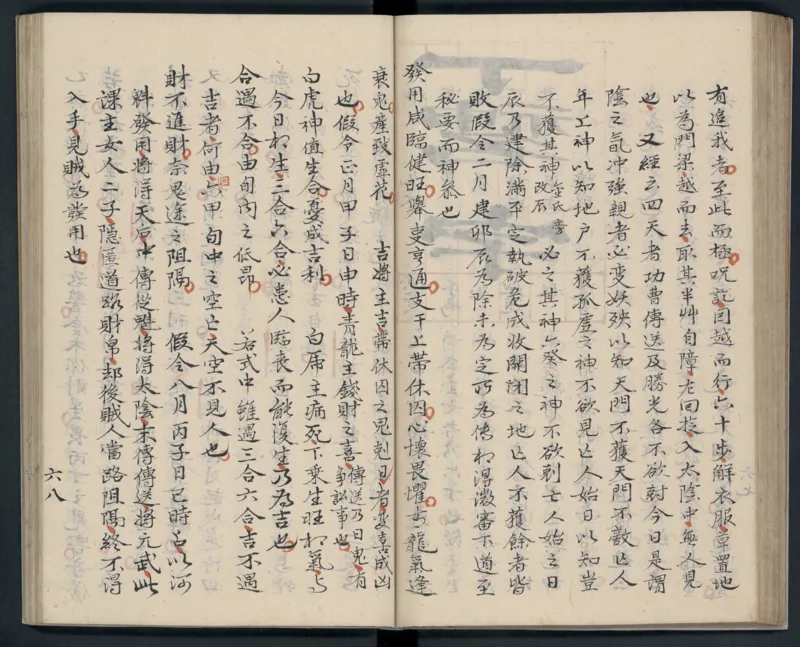 有追我者至此而極呪訖因越而行六十步解衣服章置地
以為門梁越而去取其半艸自障左回入太陰中無人見
也 又經云四天者功曹傳送及勝光各不欲尅今日是謂
陰之氣冲強親者必變妖殃以知天門不獲天門不敢亡人
年上神以知地戶不獲孤虛之神不欲見亡人始日以知豈
不獲其神 必之其神六癸之神不欲剋亡人始之日
辰乃建除滿平定執破危成收開閉之地亡人不獲餘者皆
敗假令二月建卯辰為除未為定所為傳相得微審下道至
秘要而神祭也
發用咸臨健旺舉吏亨通支干上帶休囚心懷畏懼 龍氣逢
衰鬼産致虛花 吉將主吉帶休囚之鬼剋日者变喜成凶
也假令正月甲子日申時青龍主錢財之喜傳送乃日鬼有爭訟事也
白虎神值生合憂成吉利 白虎主病死下乗生旺相氣与
今日相生三合六合必患人臨喪而能復生乃為吉也
合遇不合由旬内之低昂 若式中雖遇三合六合吉不遇
吉者何由甲旬中之空亡天空不見人也
財不進財奈鬼途之阻隔 假令八月丙子日已時占以河
料發用將得天后中傳從魁將得太陰末傳傳送將元武此
課主女人二子隱匿道路財帛却後賊人當路阻隔終不得
入手見賊為發用也
六八